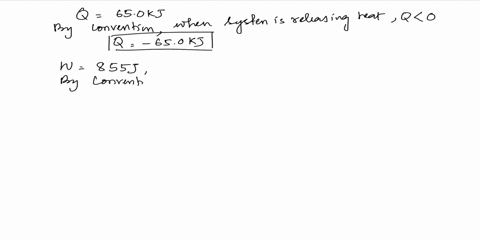 Q = 65.0 KJ
By convention, when system is releasing heat, Q < 0
Q = - 65.0 KJ
W = 855J,
By Convent